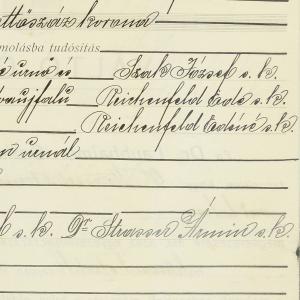 ettőszáz korona
molásba tudósítás
é urnő és Szak József s. k.
aujfalu Reichenfeld Ede s. k.
Reichenfeld Edéné s. k.
n urnál
s. k. Dr Strasser Ármin s. k.